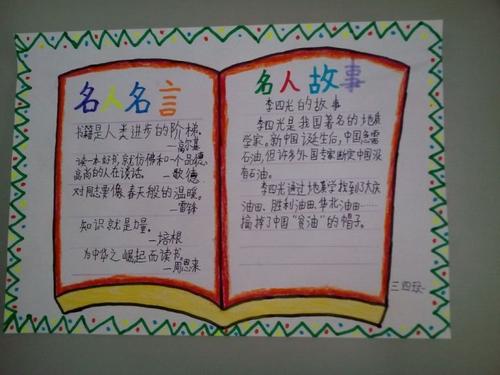 名人名言
书籍是人类进步的阶梯。
—高尔基
读一本好书,就仿佛和一个品德
高尚的人在谈话。—歌德
对同志要像春天般的温暖。
—雷锋
知识就是力量。
—培根
为中华之崛起而读书。
—周恩来
名人故事
李四光的故事
李四光是我国著名的地质
学家。新中国诞生后,中国急需
石油,但许多外国专家断定中国没
有石油。
李四光通过地质学找到了大庆
油田、胜利油田、华北油田……
搞掉了中国“贫油”的帽子。
三四班